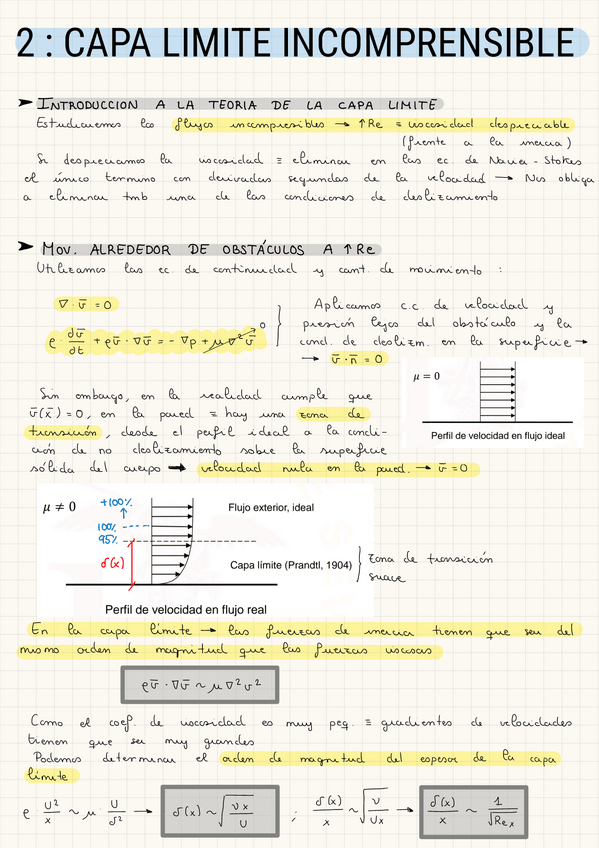 2 : CAPA LIMITE INCOMPRENSIBLE
➤ INTRODUCCION A LA TEORIA DE LA CAPA LIMITE
Estudiaremos los flujos incompresibles → ↑Re = viscosidad despreciable
(frente a la inercia)
Si despreciamos la viscosidad ≡ eliminar en las ec. de Navier-Stokes
el único termino con derivadas segundas de la velocidad → Nos obliga
a eliminar tmb una de las condiciones de deslizamiento
➤ MOV. ALREDEDOR DE OBSTÁCULOS A ↑Re
Utilizamos las ec. de continuidad y cant. de movimiento :
∇ · v̄ = 0
ρ · dv̄/dt + ρv̄ · ∇v̄ = - ∇p + μ∇²v̄ 0
Aplicamos c.c. de velocidad y
presión lejos del obstáculo y la
cond. de deslizm. en la superficie →
→ v̄ · n̄ = 0
μ = 0
Perfil de velocidad en flujo ideal
Sin embargo, en la realidad cumple que
v̄(x̄) = 0, en la pared = hay una zona de
transición, desde el perfil ideal a la condi-
ción de no deslizamiento sobre la superficie
sólida del cuerpo → velocidad nula en la pared. → v̄ = 0
μ ≠ 0
+100%
↑
100%
95%
δ(x)
Flujo exterior, ideal
Capa límite (Prandtl, 1904)
zona de transición
suave
Perfil de velocidad en flujo real
En la capa límite → las fuerzas de inercia tienen que ser del
mismo orden de magnitud que las fuerzas viscosas
ρv̄ · ∇v̄ ~ μ∇²v²
Como el coef. de viscosidad es muy peq. ≡ gradientes de velocidades
tienen que ser muy grandes
Podemos determinar el orden de magnitud del espesor de la capa
límite
ρ · U²/x ~ μ · U/δ² → δ(x) ~ √(νx/U) ; δ(x)/x ~ √(ν/Ux) → δ(x)/x ~ 1/√Reₓ